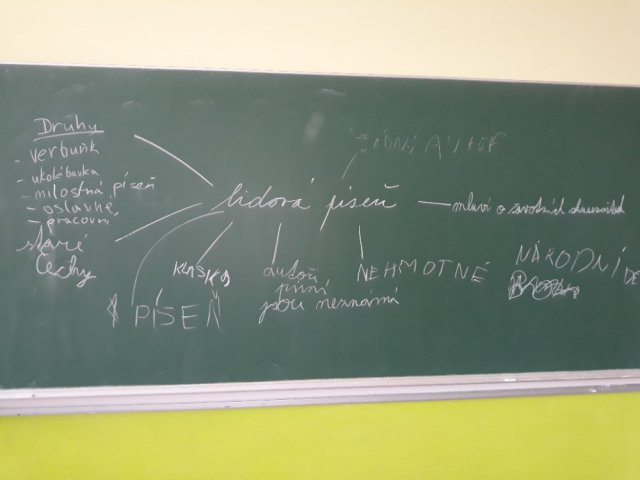 Druhy
- verbuňk
- ukolébavka
- milostná píseň
- oslavné,
- pracovní
staré
čechy
lidová píseň
mluví o životních
PÍSEŇ
autoři
písní
jsou neznámí
NEHMOTNÉ
NÁRODNÍ
DĚ